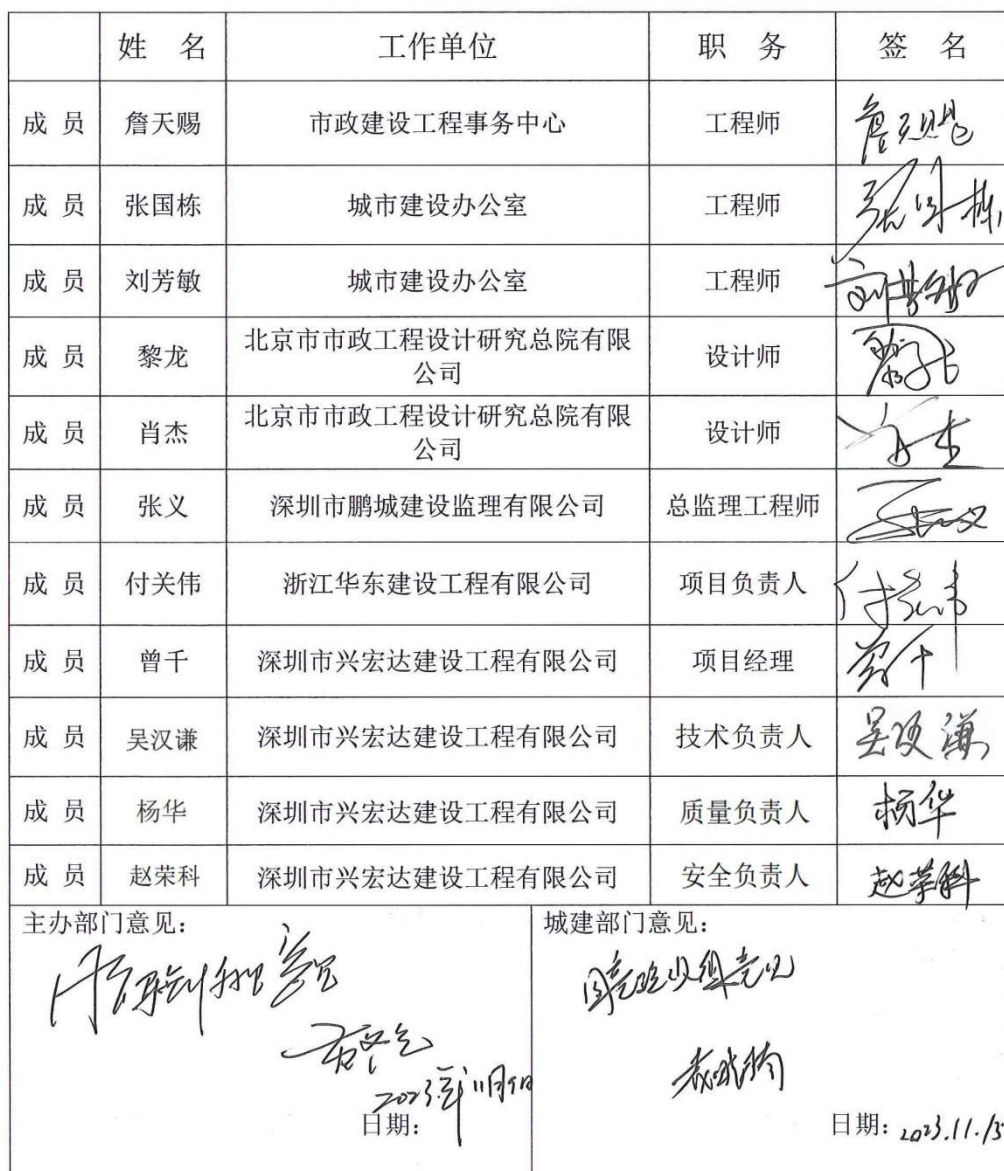 姓 名 工作单位 职 务 签 名
成 员 詹天赐 市政建设工程事务中心 工程师 詹天赐
成 员 张国栋 城市建设办公室 工程师 张国栋
成 员 刘芳敏 城市建设办公室 工程师 刘芳敏
成 员 黎龙 北京市市政工程设计研究总院有限
公司 设计师 黎龙
成 员 肖杰 北京市市政工程设计研究总院有限
公司 设计师 肖杰
成 员 张义 深圳市鹏城建设监理有限公司 总监理工程师 张义
成 员 付关伟 浙江华东建设工程有限公司 项目负责人 付关伟
成 员 曾千 深圳市兴宏达建设工程有限公司 项目经理 曾千
成 员 吴汉谦 深圳市兴宏达建设工程有限公司 技术负责人 吴汉谦
成 员 杨华 深圳市兴宏达建设工程有限公司 质量负责人 杨华
成 员 赵荣科 深圳市兴宏达建设工程有限公司 安全负责人 赵荣科
主办部门意见：
2023年11月9日
日期：
城建部门意见：
同意验收组意见
日期：2023.11.13